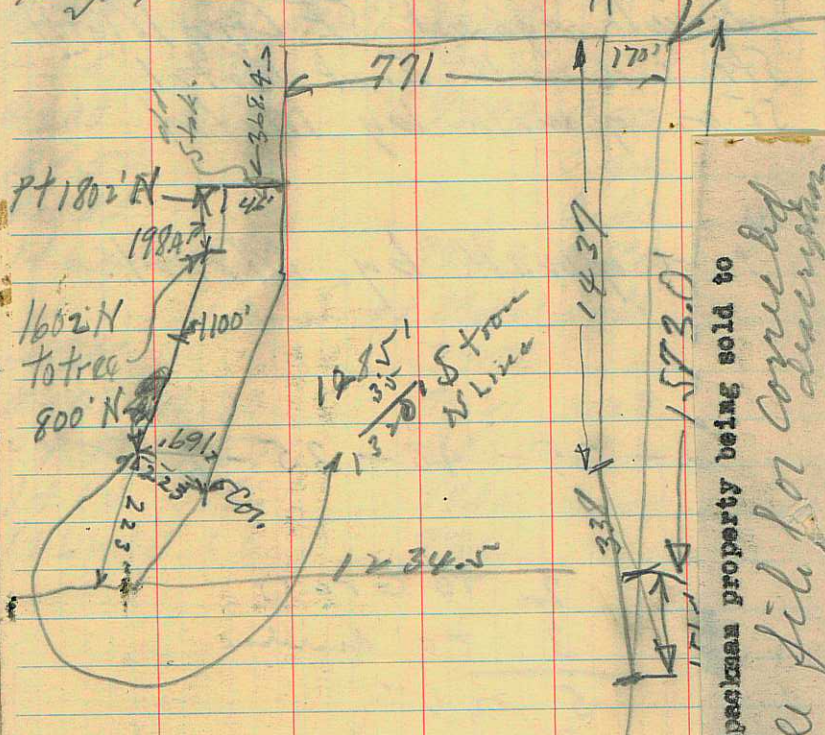 771
170'
368.4'
old
Stak.
Pt 1802' N
42'
198
1602' N
to tree
1100'
800' N
169'
223
1437
1573.0'
1285'
35
1320' S from
N Line
338
1234.5
packman property being sold to
file for corrected
description